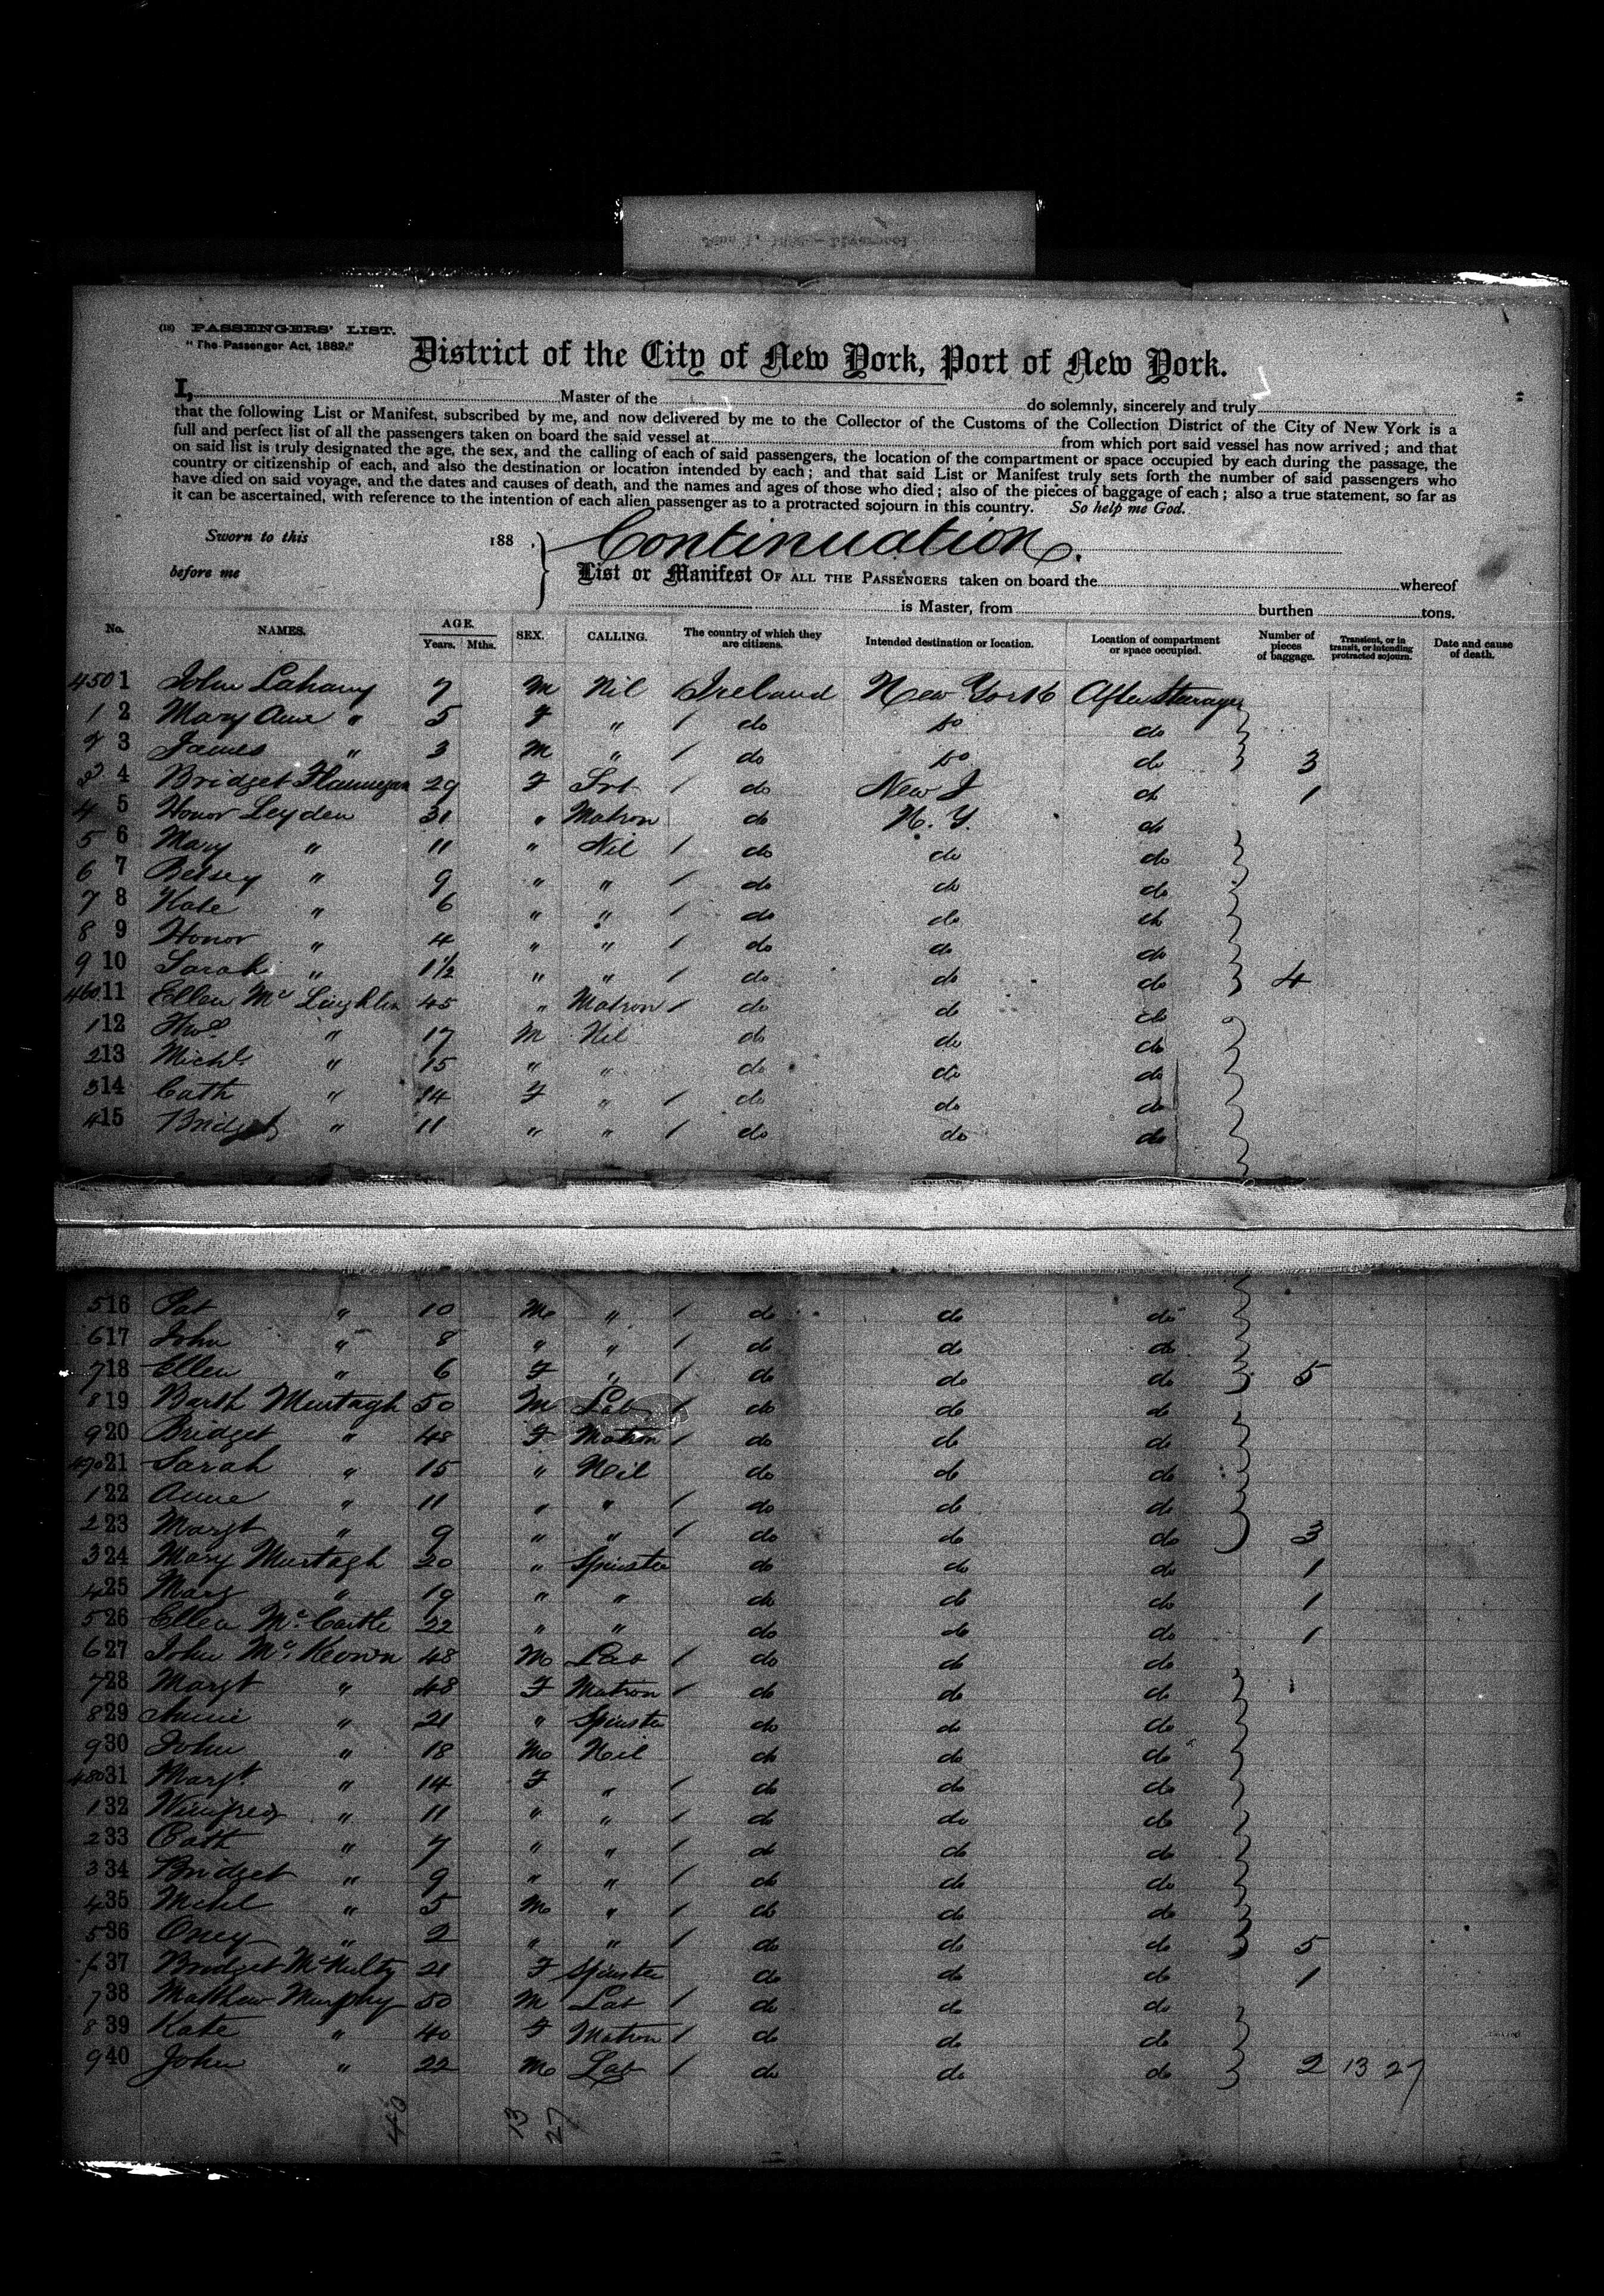 (18) PASSENGERS' LIST.
"The Passenger Act, 1882."
District of the City of New York, Port of New York.
I, Master of the do solemnly, sincerely and truly
that the following List or Manifest, subscribed by me, and now delivered by me to the Collector of the Customs of the Collection District of the City of New York is a
full and perfect list of all the passengers taken on board the said vessel at from which port said vessel has now arrived; and that
on said list is truly designated the age, the sex, and the calling of each of said passengers, the location of the compartment or space occupied by each during the passage, the
country or citizenship of each, and also the destination or location intended by each; and that said List or Manifest truly sets forth the number of said passengers who
have died on said voyage, and the dates and causes of death, and the names and ages of those who died; also of the pieces of baggage of each; also a true statement, so far as
it can be ascertained, with reference to the intention of each alien passenger as to a protracted sojourn in this country. So help me God.
Sworn to this 188
Continuation.
before me
List or Manifest OF ALL THE PASSENGERS taken on board the whereof
is Master, from burthen tons.
No. NAMES. AGE. Years. Mths. SEX. CALLING. The country of which they are citizens. Intended destination or location. Location of compartment or space occupied. Number of pieces of baggage. Transient, or in transit, or intending protracted sojourn. Date and cause of death.
450 1 John Lahany 7 M Nil 1 Ireland New York After Steerage
1 2 Mary Ann " 5 F " 1 do do do
2 3 James " 3 M " 1 do do do 3
3 4 Bridget Flannegan 29 F Srt 1 do New J do 1
4 5 Honor Leyden 31 " Matron do N. Y. do
5 6 Mary " 11 " Nil 1 do do do
6 7 Betsey " 9 " " 1 do do do
7 8 Kate " 6 " " 1 do do do
8 9 Honor " 4 " " 1 do do do
9 10 Sarah " 1½ " " 1 do do do 4
460 11 Ellen Mc Loughlin 45 " Matron 1 do do do
1 12 Thos " 17 M Nil do do do
2 13 Michl. " 15 " " do do do
3 14 Cath " 14 F " 1 do do do
4 15 Bridget " 11 " " 1 do do do
5 16 Pat " 10 M " 1 do do do
6 17 John " 8 " " 1 do do do
7 18 Ellen " 6 F " 1 do do do 5
8 19 Barth Murtagh 50 M Lab 1 do do do
9 20 Bridget " 48 F Matron 1 do do do
470 21 Sarah " 15 " Nil do do do
1 22 Anne " 11 " " 1 do do do
2 23 Margt " 9 " " 1 do do do 3
3 24 Mary Murtagh 20 " Spinster do do do 1
4 25 Marg " 19 " " do do do 1
5 26 Ellen Mc. Castle 22 " " do do do 1
6 27 John Mc. Keown 48 M Lab 1 do do do
7 28 Margt " 48 F Matron 1 do do do
8 29 Annie " 21 " Spinster do do do
9 30 John " 18 M Nil do do do
480 31 Margt. " 14 F " 1 do do do
1 32 Winifred " 11 " " 1 do do do
2 33 Cath " 7 " " 1 do do do
3 34 Bridget " 9 " " 1 do do do
4 35 Michl " 5 M " 1 do do do
5 36 Oney " 2 " " 1 do do do 5
6 37 Bridget McNulty 21 F Spinster do do do 1
7 38 Matthew Murphy 50 M Lab 1 do do do
8 39 Kate " 40 F Matron 1 do do do
9 40 John " 22 M Lab 1 do do do 2 13 27
40 13 27